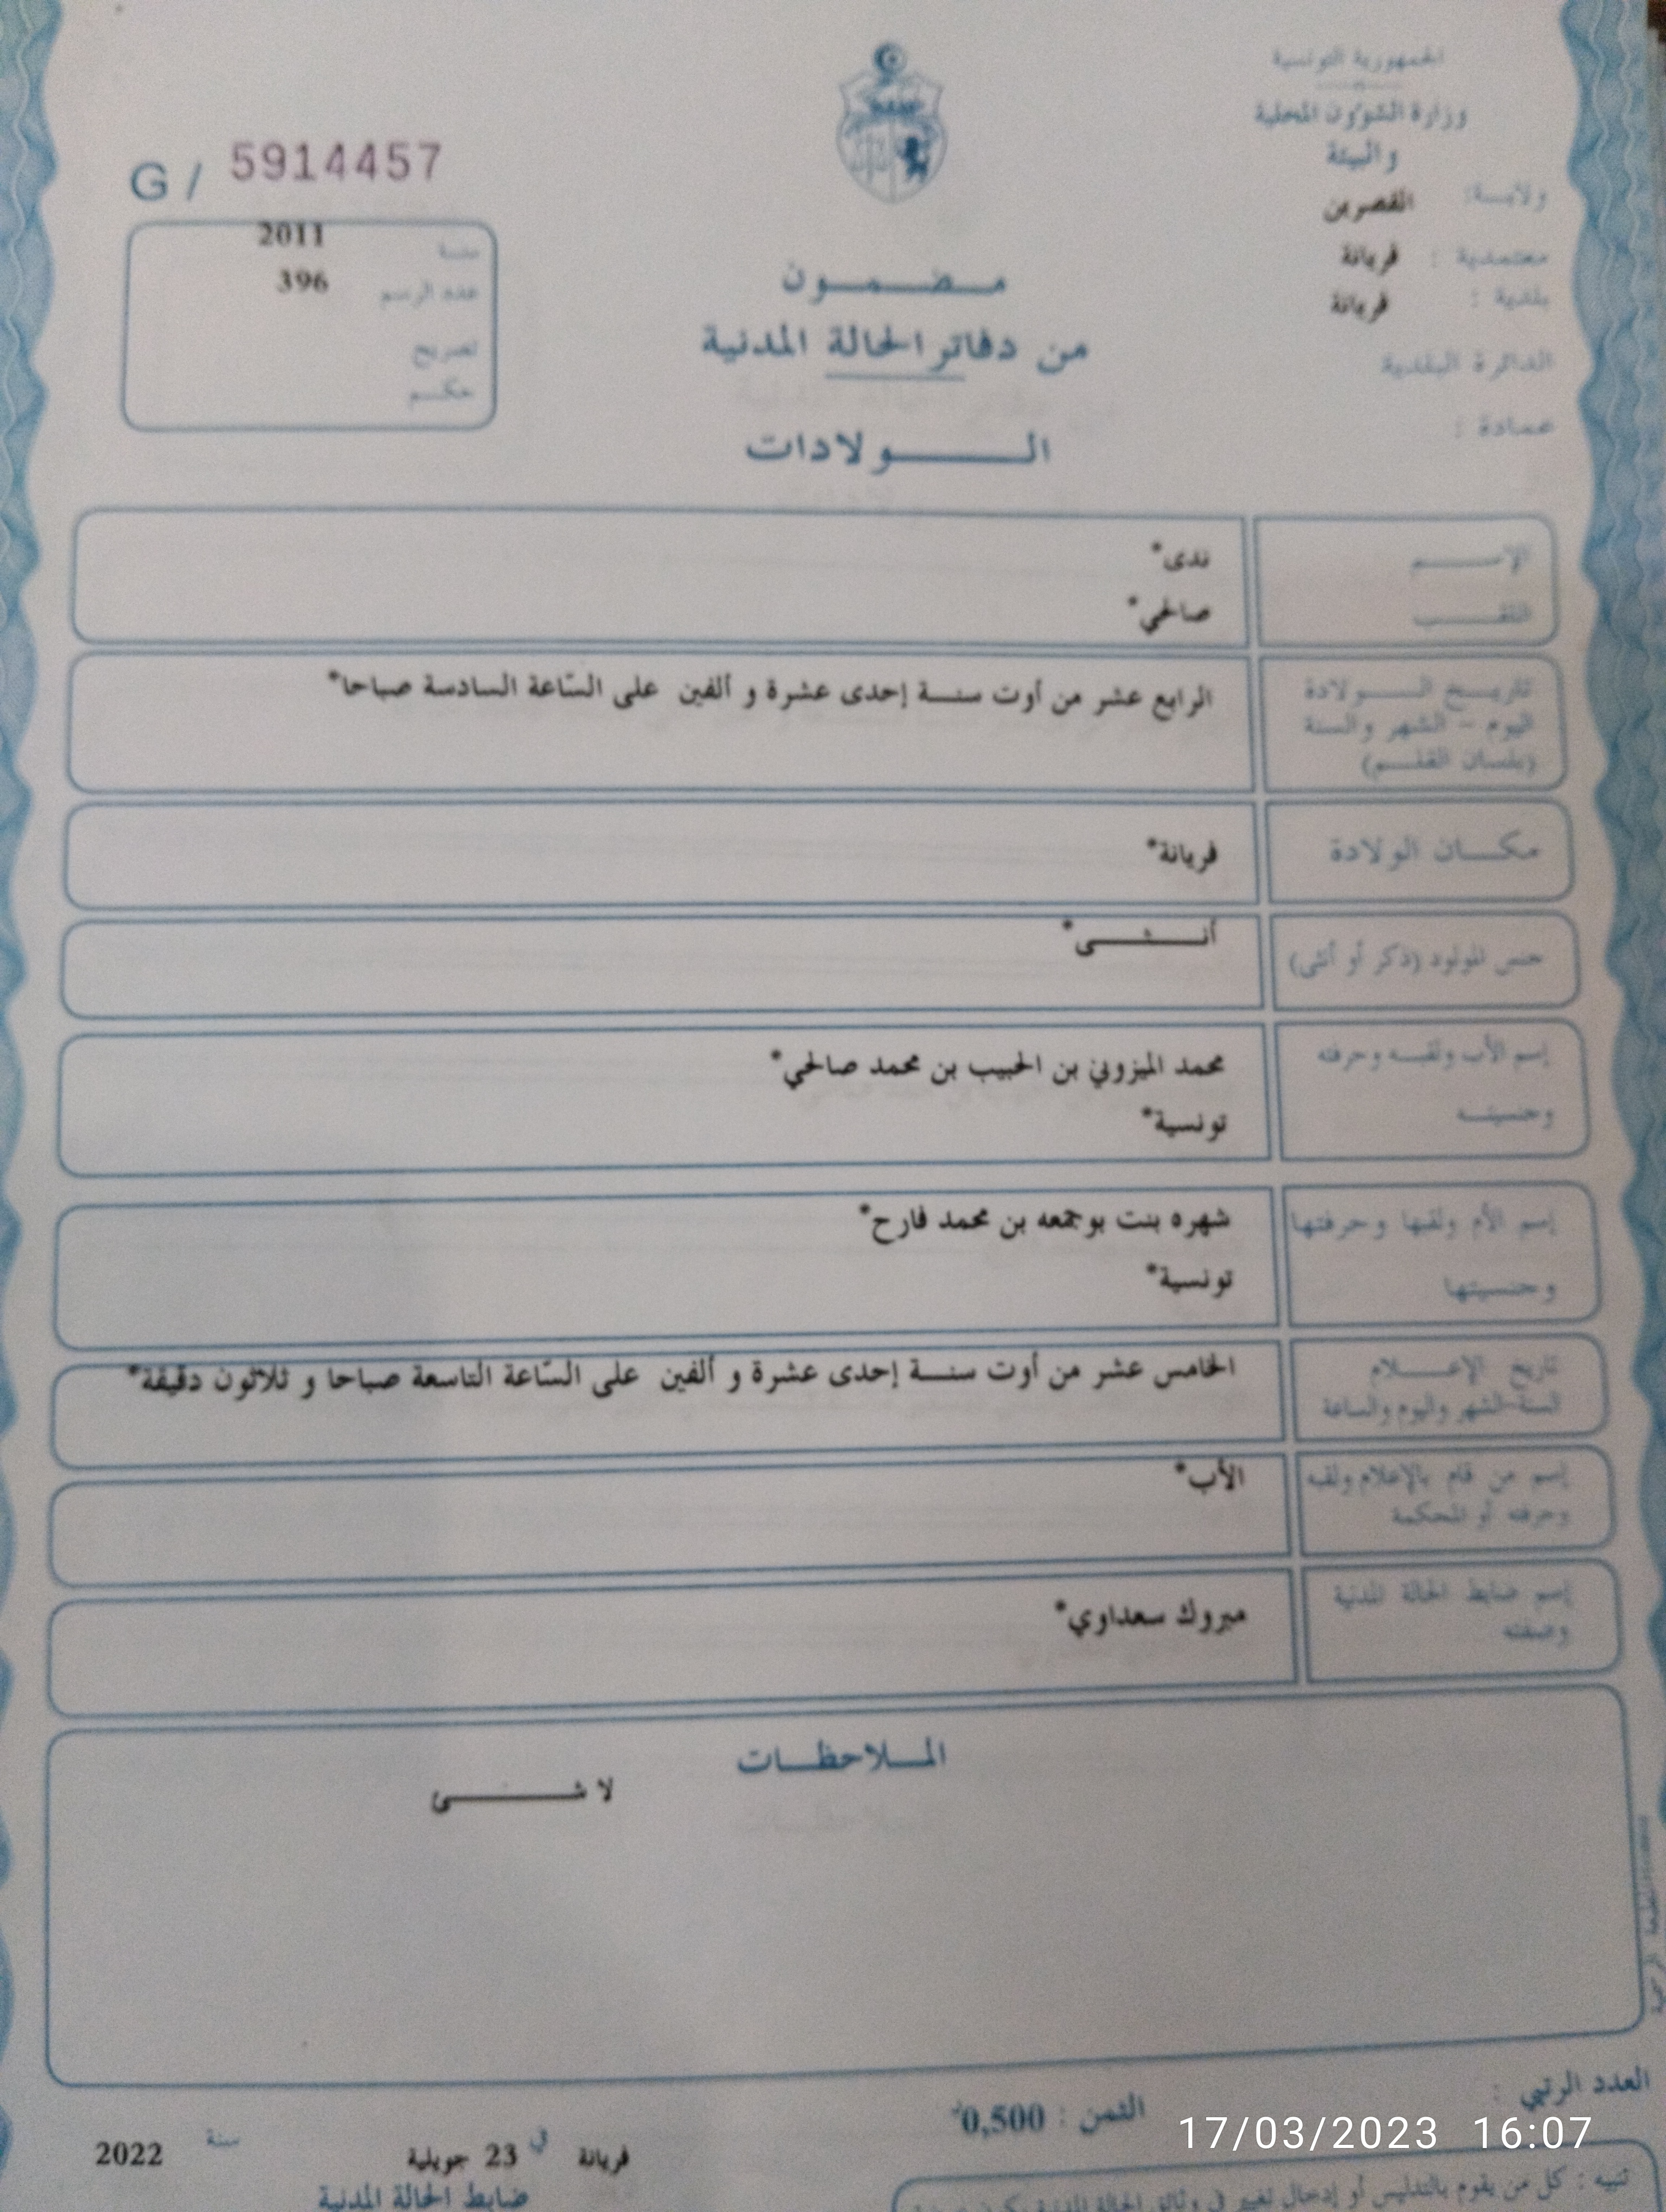 الجمهورية التونسية
وزارة الشؤون المحلية
والبيئة
ولايـــة: القصرين
معتمدية : فريانة
بلدية : فريانة
الدائرة البلدية
عمادة :
G / 5914457
سنة 2011
عدد الرسم 396
تصريح
حكم
مضمون
من دفاتر الحالة المدنية
الولادات
الإسم ندى*
اللقب صالحي*
تاريخ الولادة
اليوم - الشهر والسنة
(بلسان القلم)
الرابع عشر من أوت سنة إحدى عشرة و ألفين على السّاعة السادسة صباحا*
مكان الولادة فريانة*
جنس المولود (ذكر أو أنثى) أنثى*
إسم الأب ولقبه وحرفته
وجنسيته
محمد الميزوني بن الحبيب بن محمد صالحي*
تونسية*
إسم الأم ولقبها وحرفتها
وجنسيتها
شهره بنت بوجمعه بن محمد فارح*
تونسية*
تاريخ الإعلام
السنة-الشهر واليوم والساعة
الخامس عشر من أوت سنة إحدى عشرة و ألفين على السّاعة التاسعة صباحا و ثلاثون دقيقة*
إسم من قام بالإعلام ولقبه
وحرفته أو المحكمة
الأب*
إسم ضابط الحالة المدنية
وصفته
مبروك سعداوي*
الملاحظات
لا شئ
العدد الرتبي :
الثمن : 0,500د
فريانة في 23 جويلية سنة 2022
ضابط الحالة المدنية
تنبيه : كل من يقوم بالتدليس أو إدخال تغيير في وثائق الحالة المدنية يكون
17/03/2023 16:07